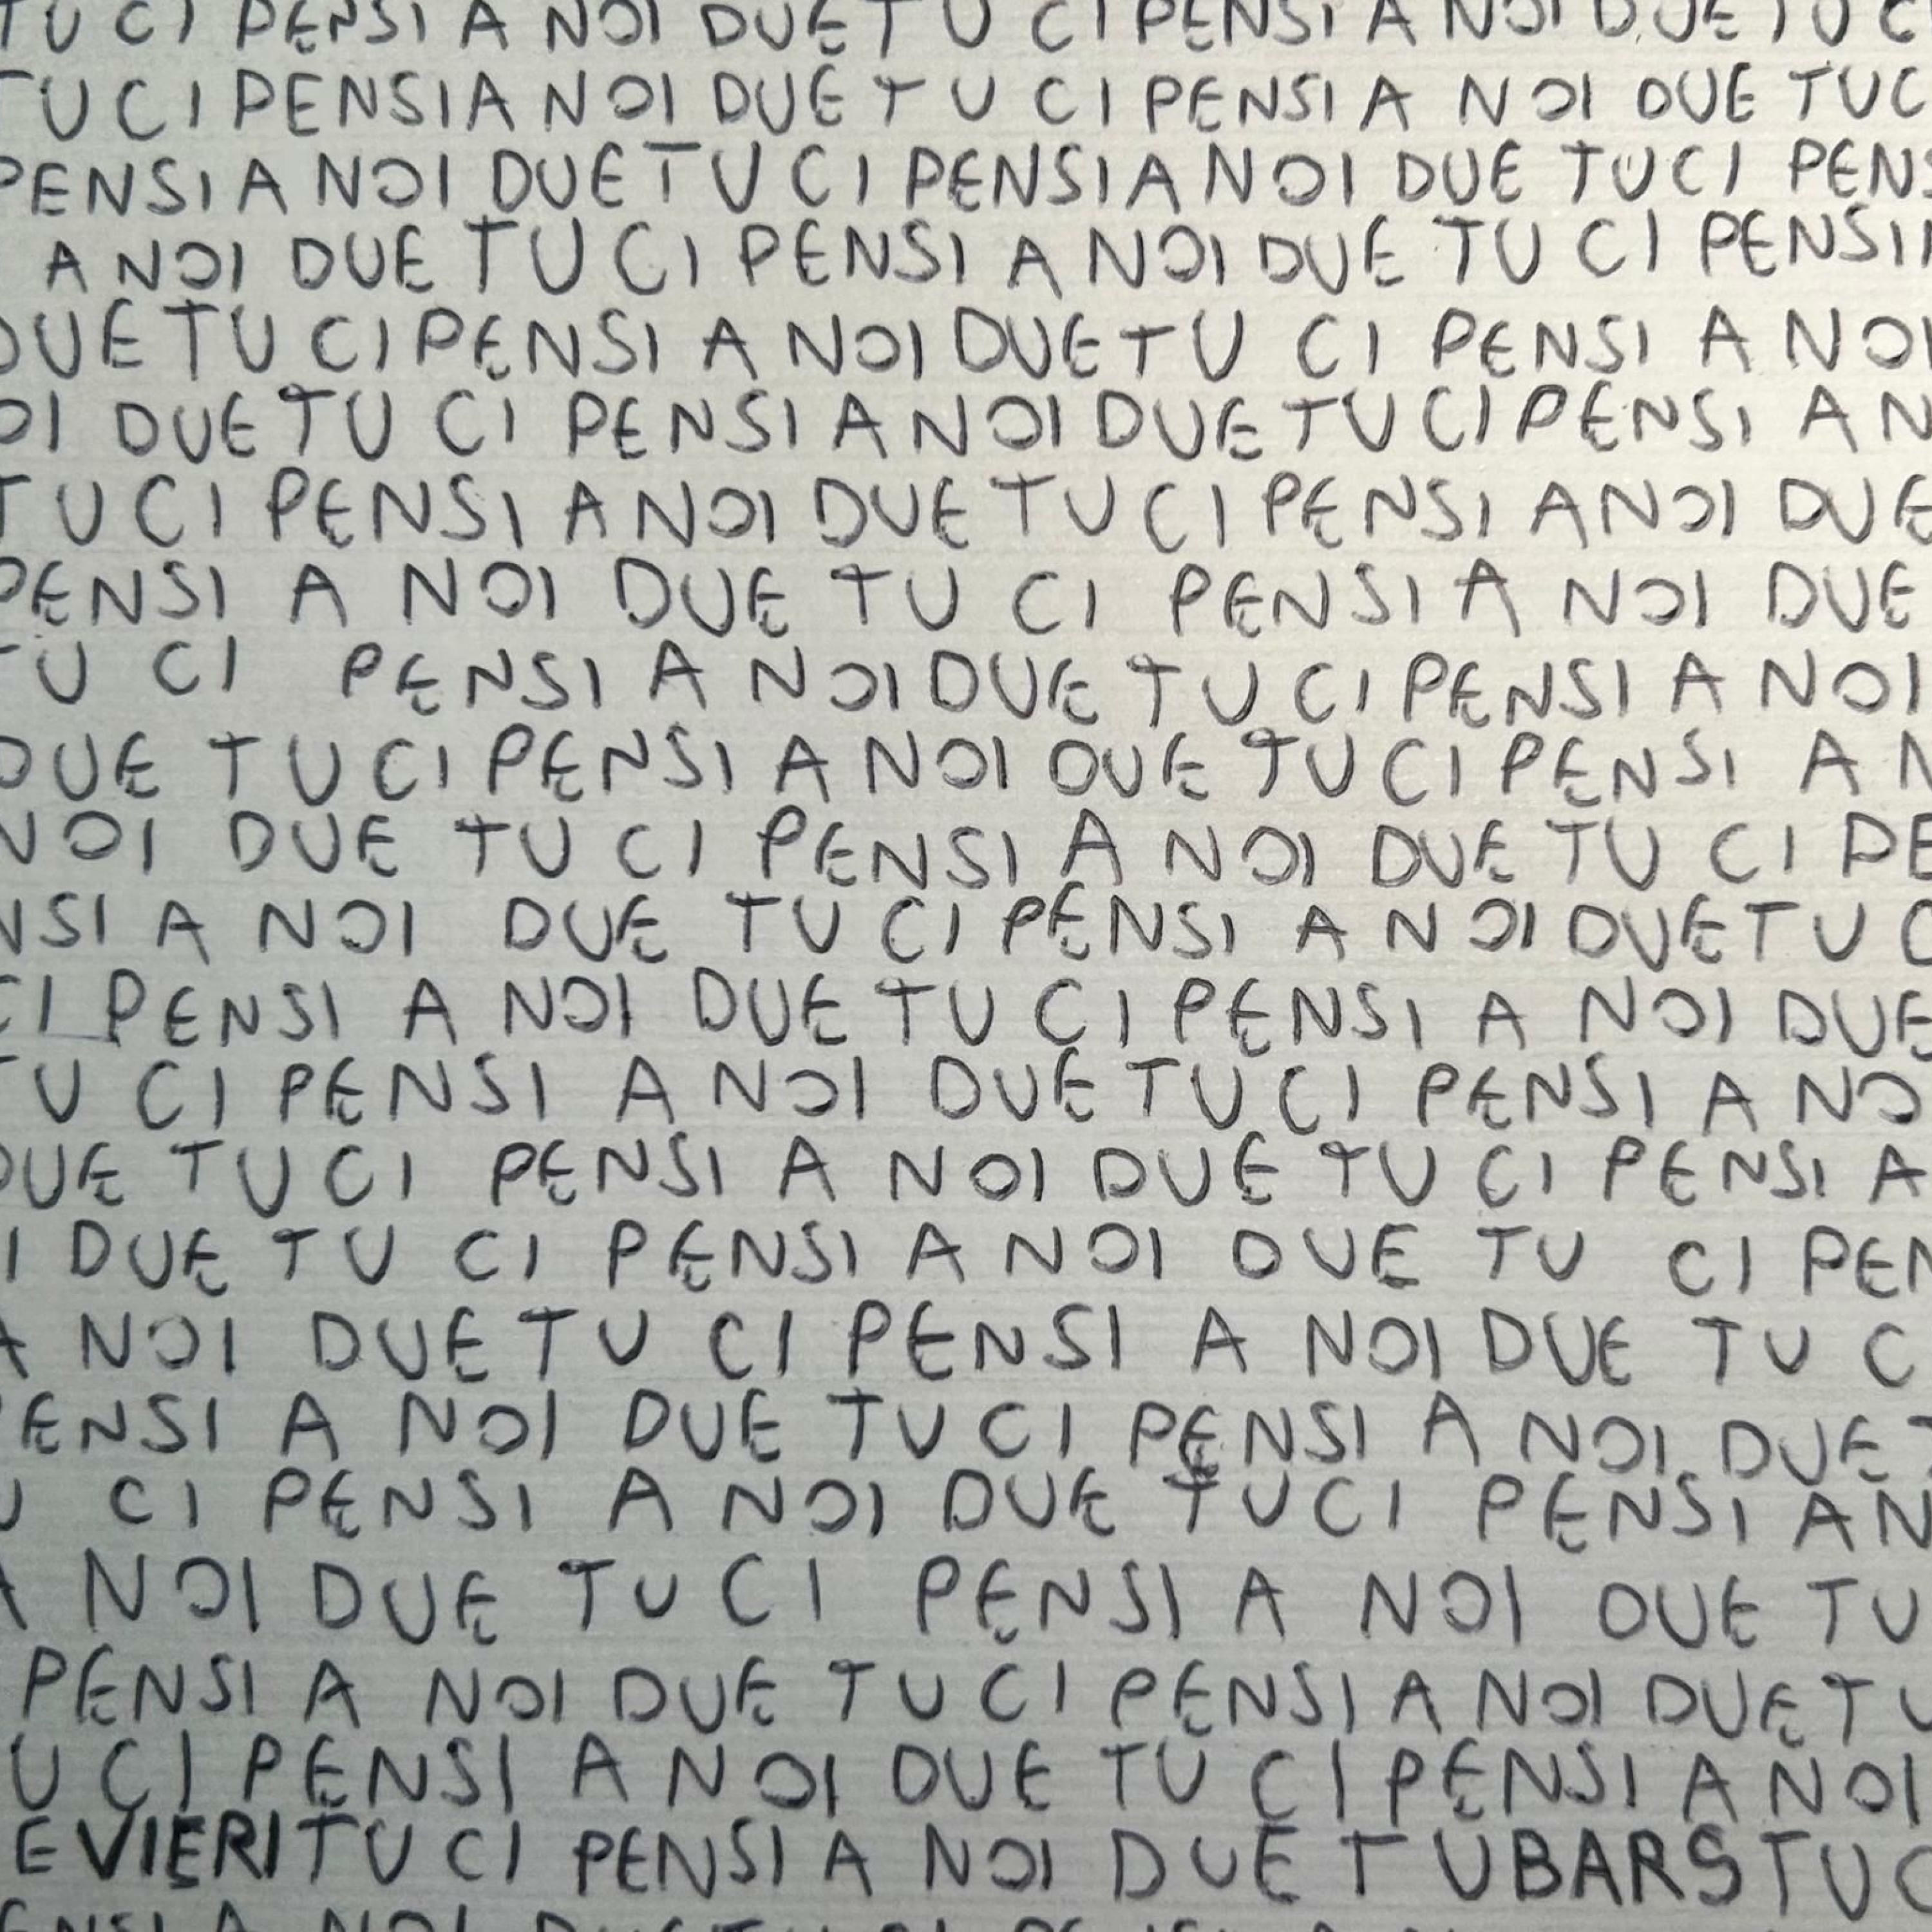 TU CI PENSI A NOI DUE TU CI PENSI A NOI DUE TU C
TU CI PENSI A NOI DUE TU CI PENSI A NOI DUE TU C
PENSI A NOI DUE TU CI PENSI A NOI DUE TU CI PENS
A NOI DUE TU CI PENSI A NOI DUE TU CI PENSI
DUE TU CI PENSI A NOI DUE TU CI PENSI A NOI
OI DUE TU CI PENSI A NOI DUE TU CI PENSI A N
TU CI PENSI A NOI DUE TU CI PENSI A NOI DUE
PENSI A NOI DUE TU CI PENSI A NOI DUE
TU CI PENSI A NOI DUE TU CI PENSI A NOI
DUE TU CI PENSI A NOI DUE TU CI PENSI A N
NOI DUE TU CI PENSI A NOI DUE TU CI PE
NSI A NOI DUE TU CI PENSI A NOI DUE TU C
CI PENSI A NOI DUE TU CI PENSI A NOI DUE
TU CI PENSI A NOI DUE TU CI PENSI A NO
DUE TU CI PENSI A NOI DUE TU CI PENSI A
I DUE TU CI PENSI A NOI DUE TU CI PEN
A NOI DUE TU CI PENSI A NOI DUE TU C
PENSI A NOI DUE TU CI PENSI A NOI DUE T
U CI PENSI A NOI DUE TU CI PENSI A N
A NOI DUE TU CI PENSI A NOI DUE TU
PENSI A NOI DUE TU CI PENSI A NOI DUE TU
U CI PENSI A NOI DUE TU CI PENSI A NOI
EVIERI TU CI PENSI A NOI DUE TU BARS TU C